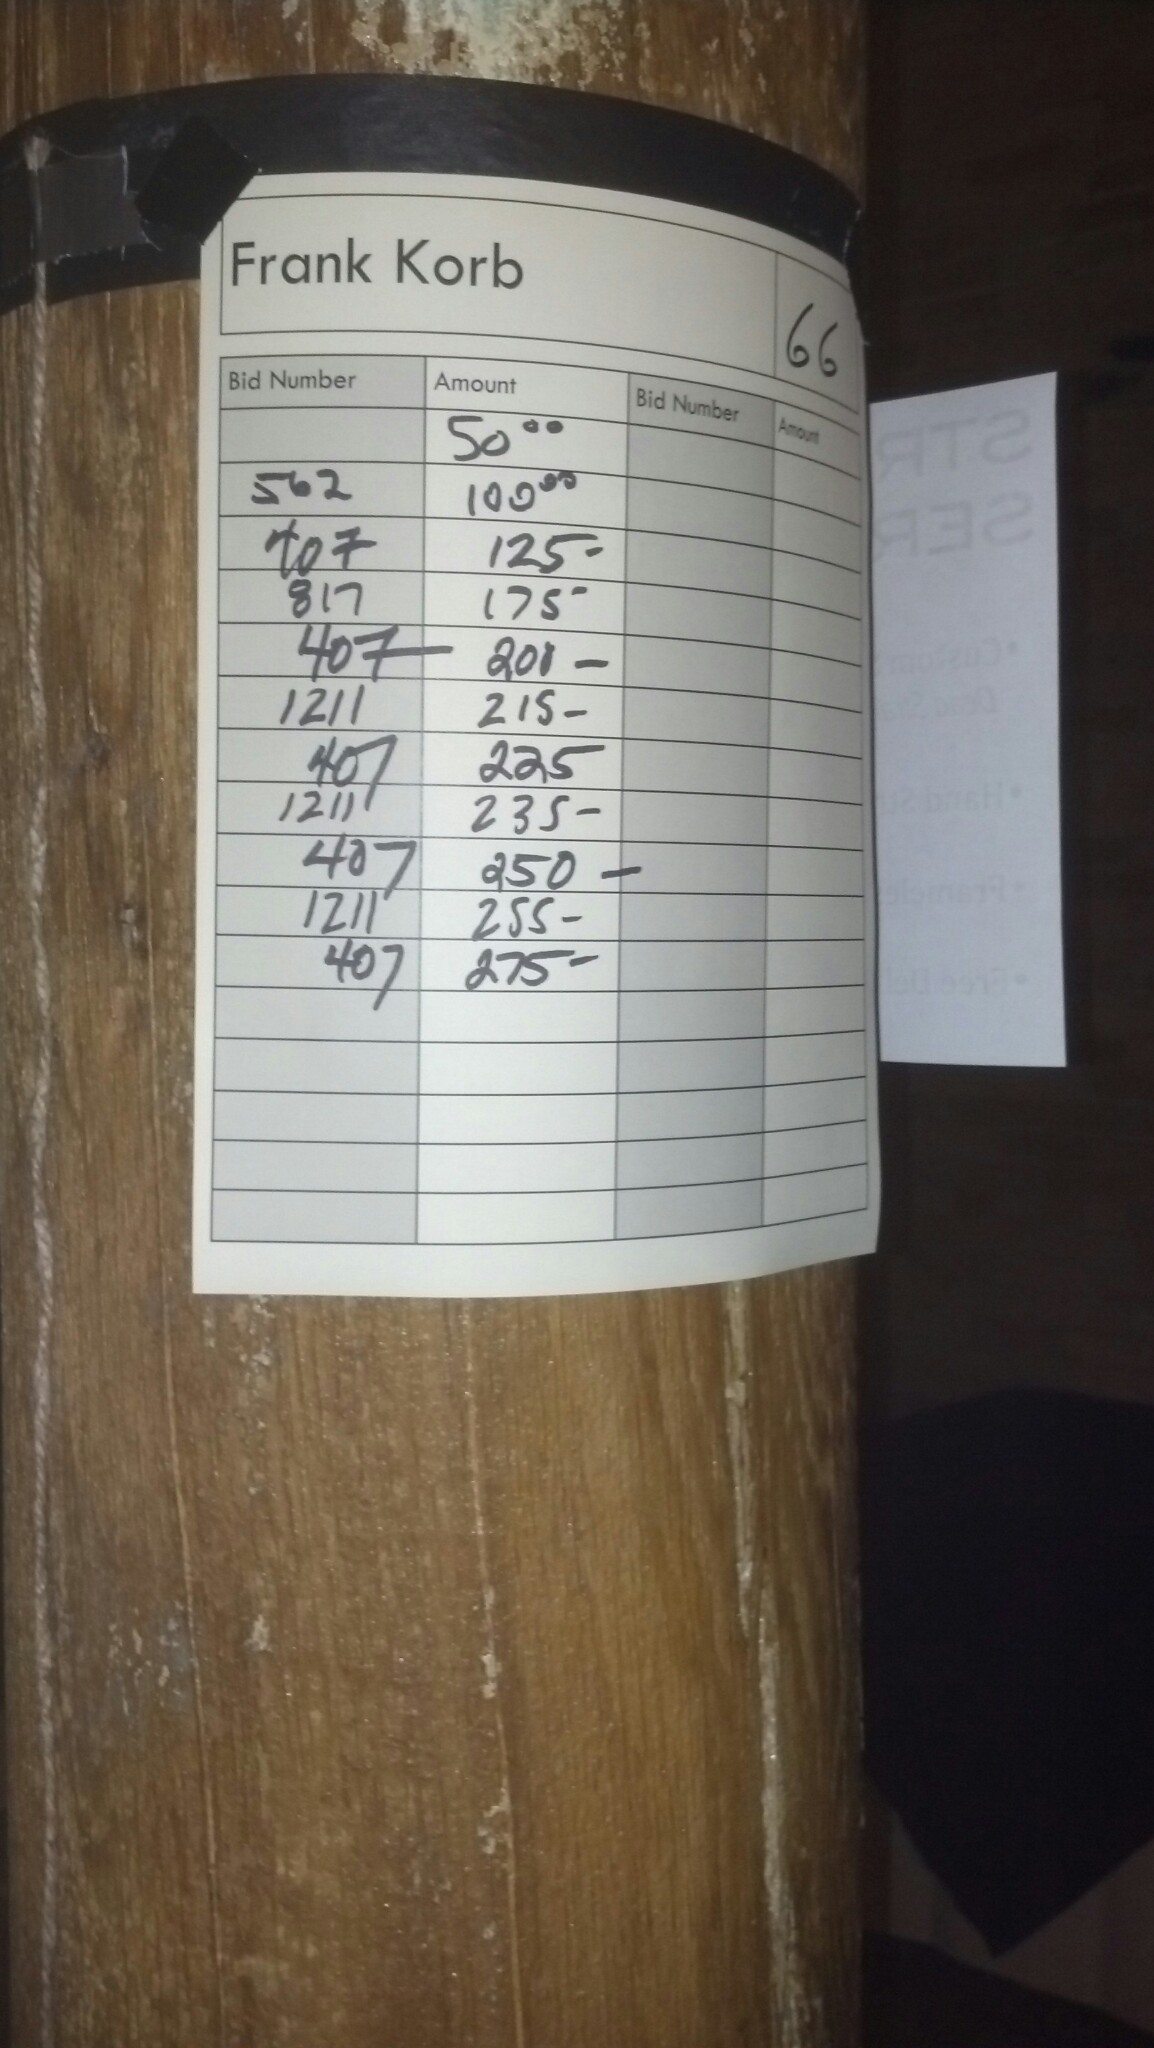 Frank Korb 66
Bid Number Amount Bid Number Amount
50 00
562 100 00
407 125-
817 175-
407 — 200 —
1211 215-
407 225
1211 235-
407 250 —
1211 255-
407 275-
STR
SER
• Custom
Dead
• Hand
• Framele
• Free Del